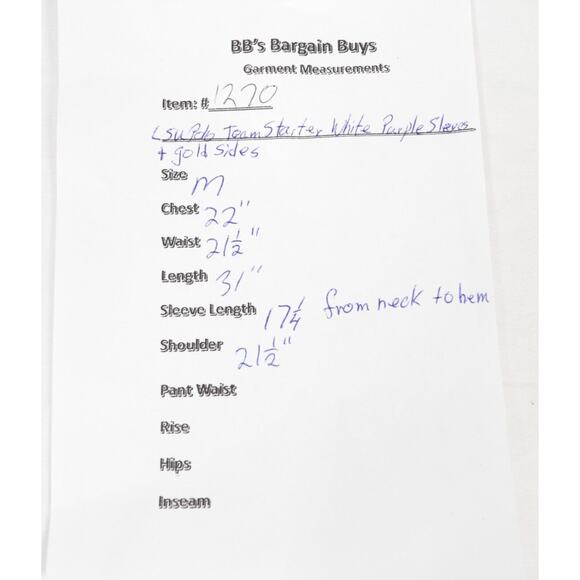 BB's Bargain Buys
Garment Measurements
Item: # 1270
LSU Polo Team Starter White Purple Sleeves
+ gold sides
Size m
Chest 22"
Waist 21 1/2"
Length 31"
Sleeve Length 17 1/4 from neck to hem
Shoulder 21 1/2"
Pant Waist
Rise
Hips
Inseam